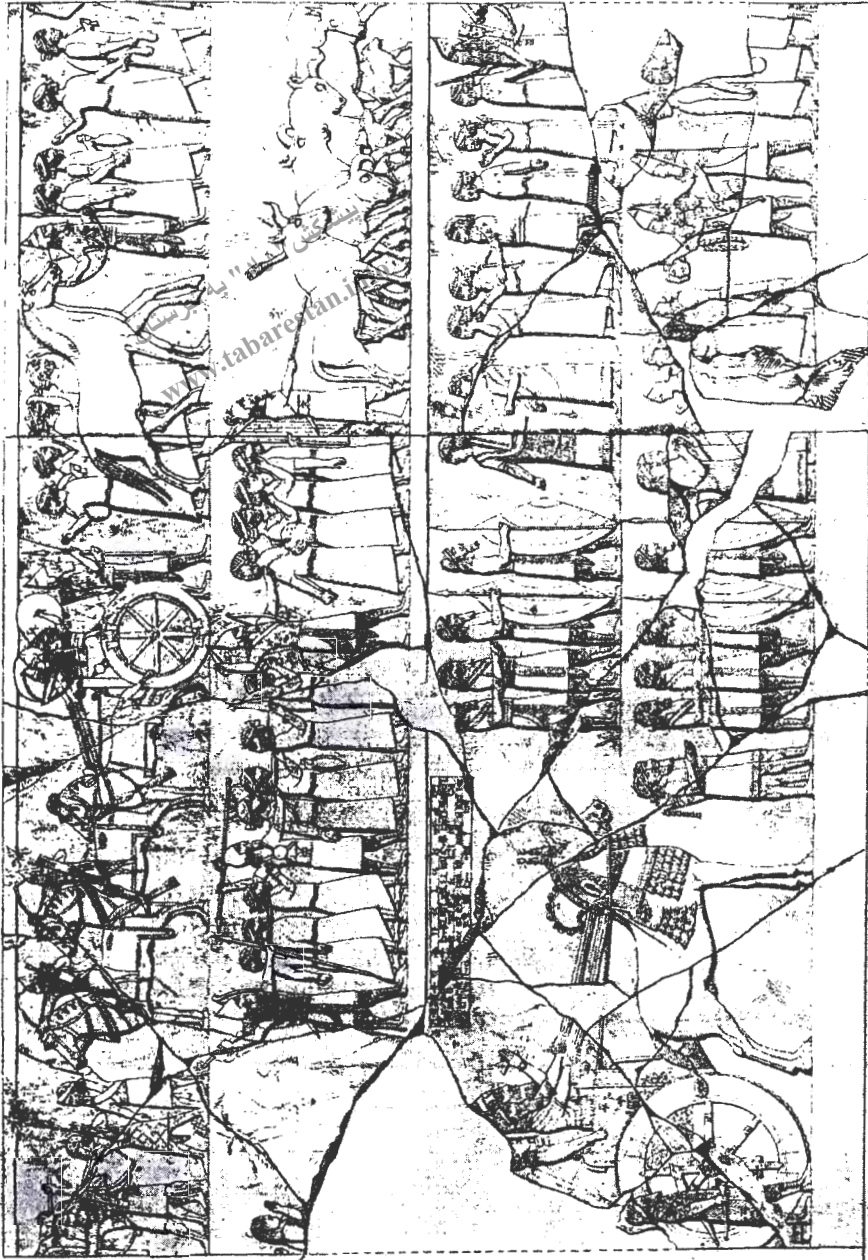 پیشکش به تبرستان
www.tabarestan.info